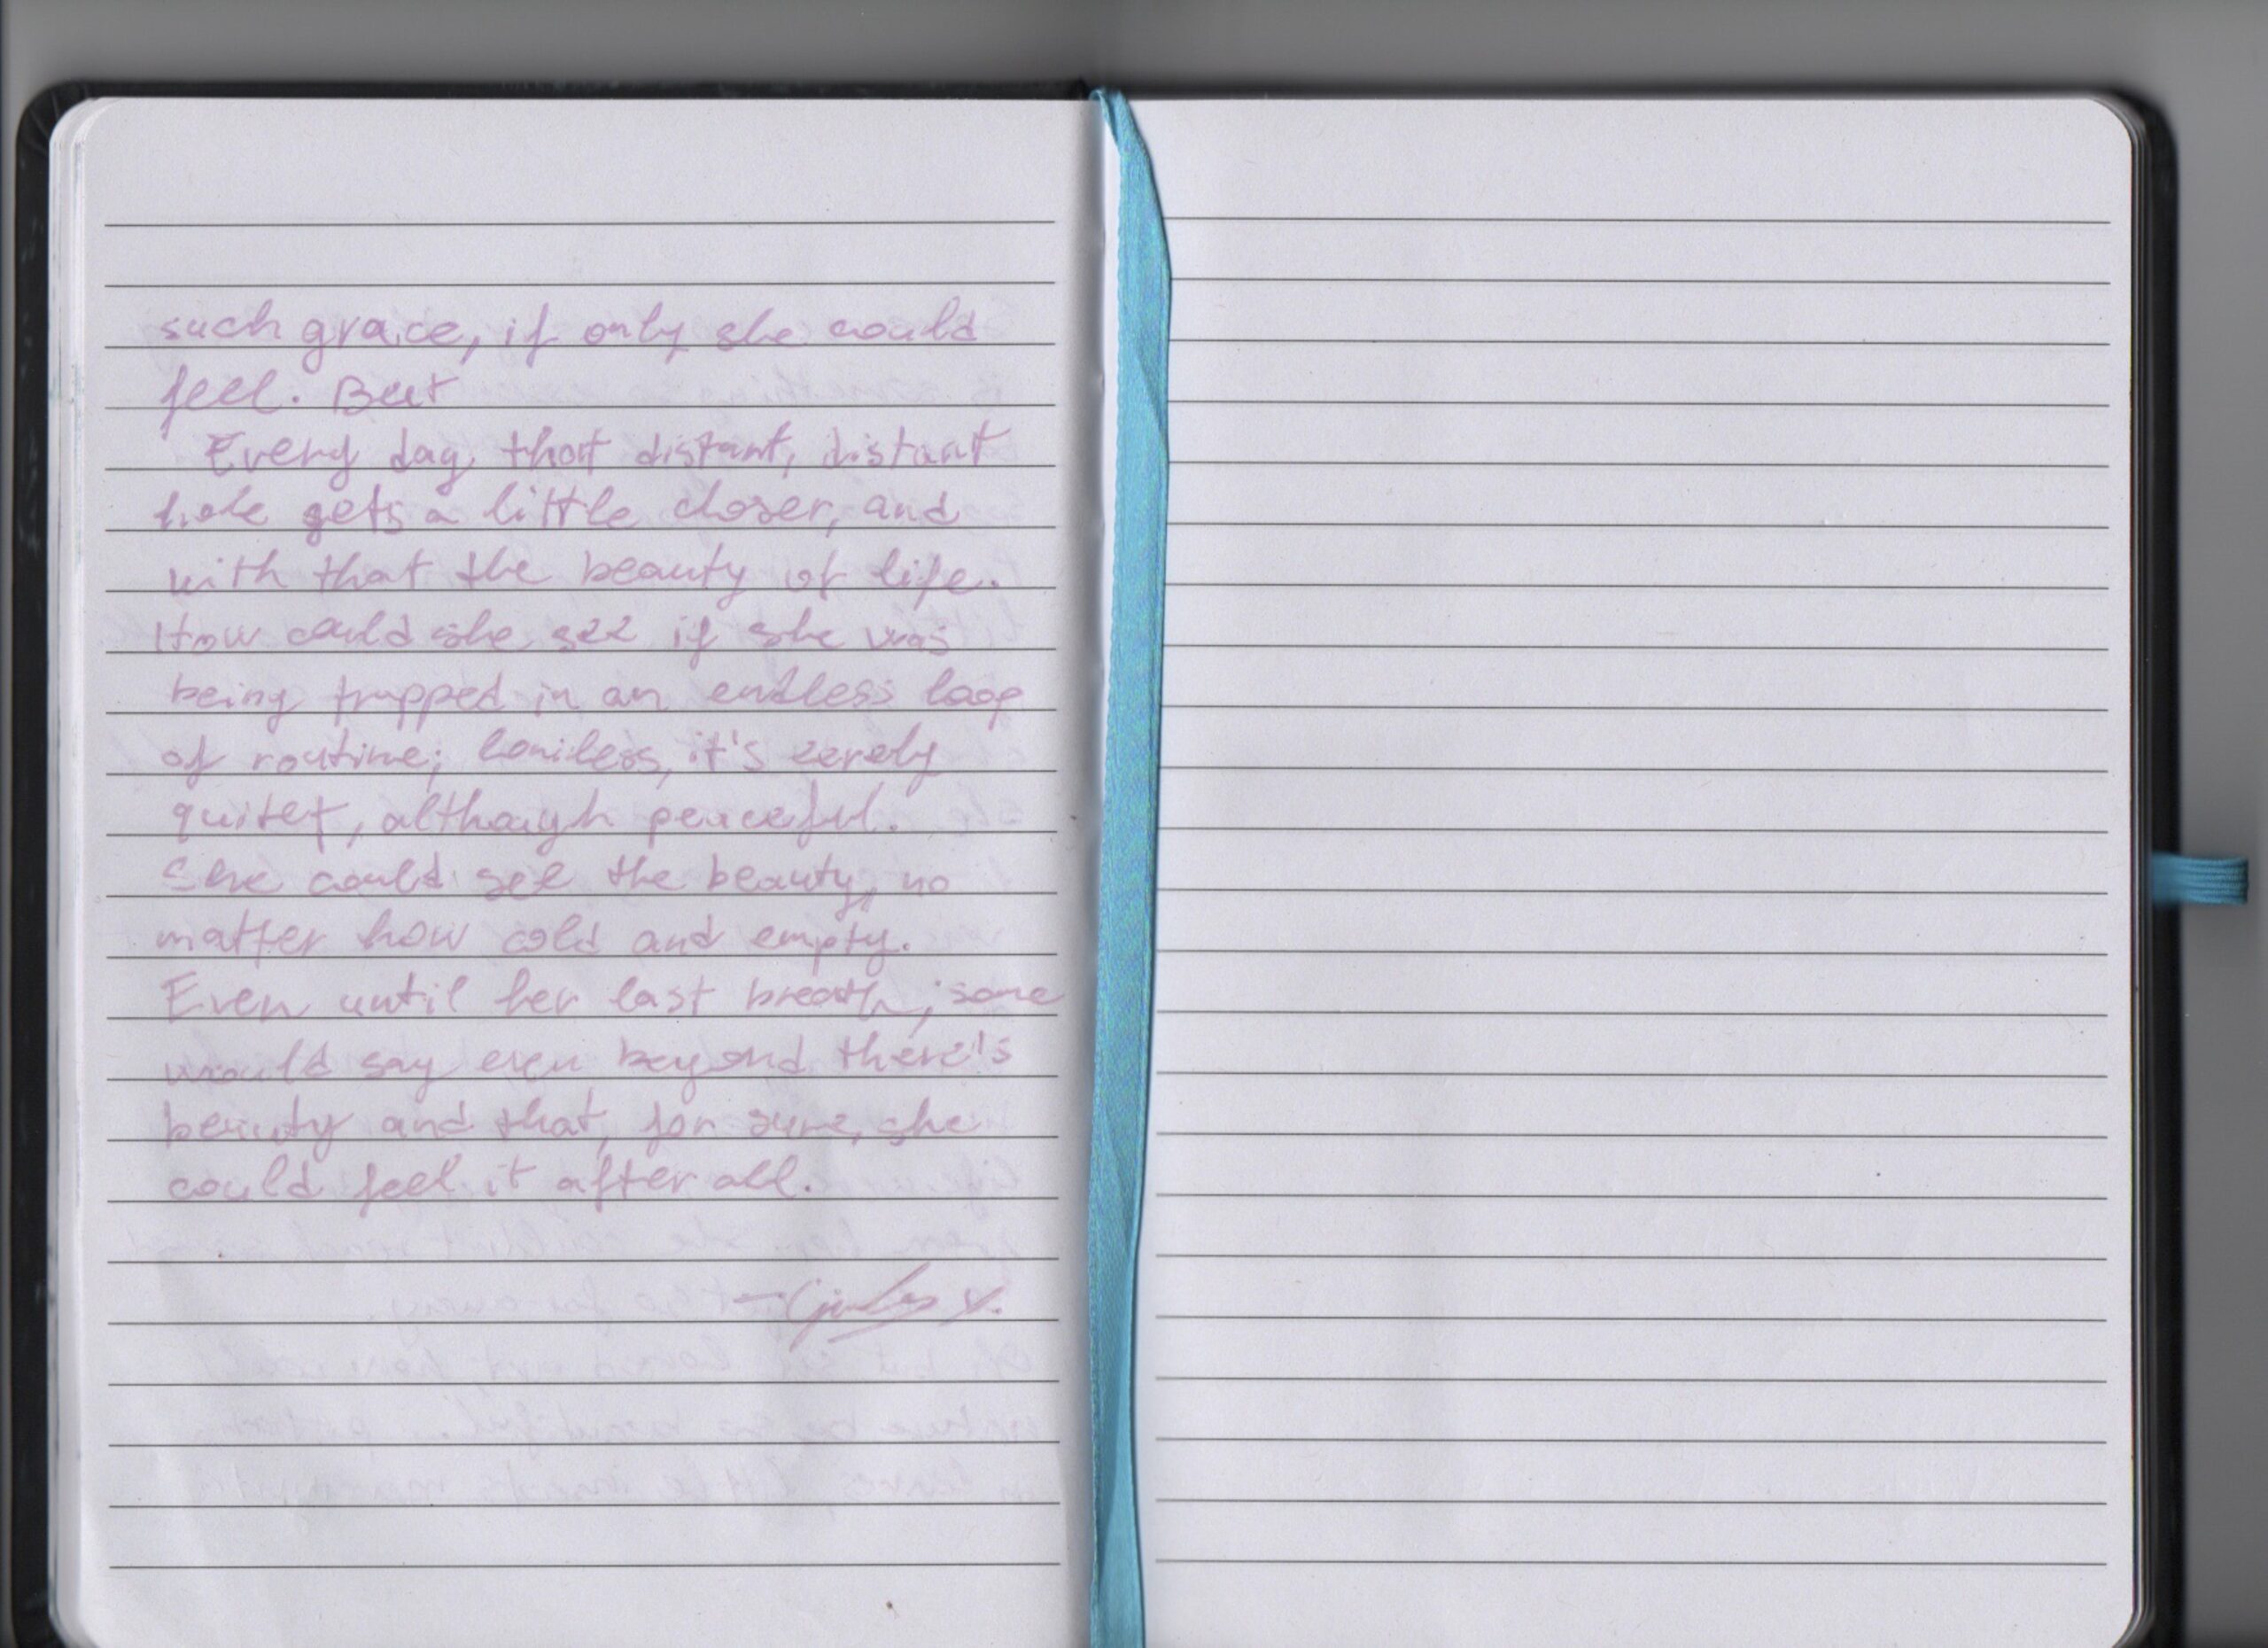 such grace, if only she could
feel. But
Every day, that distant, distant
hole gets a little closer, and
with that the beauty of life.
How could she see if she was
being trapped in an endless loop
of routine; it's eerely
quitet, although peaceful.
She could see the beauty, no
matter how cold and empty.
Even until her last breath; some
would say even beyond there's
beauty and that, for sure, she
could feel it after all.